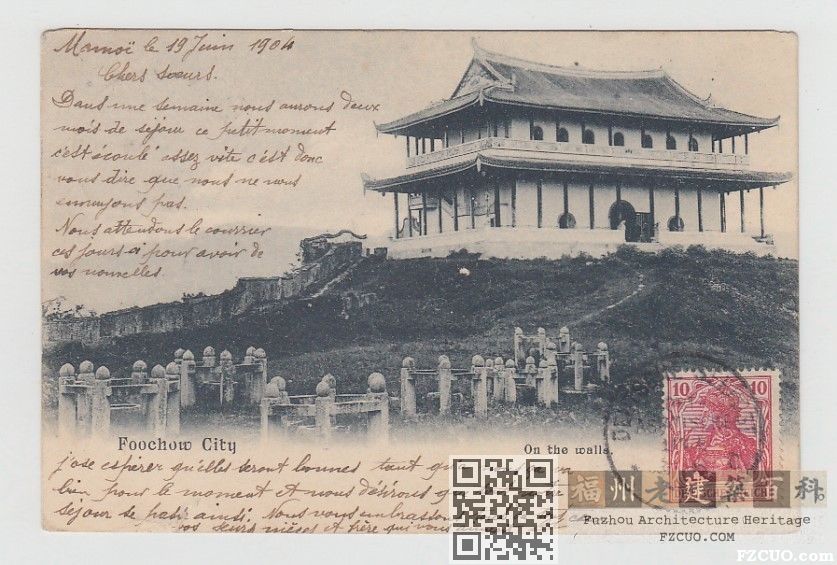 Mamoï le 19 Juin 1904
Chers sœurs.
Dans une semaine nous aurons deux
mois de séjour ce petit moment
c'est écoulé assez vite c'est donc
vous dire que nous ne nous
ennuyons pas.
Nous attendons le courrier
ces jours-ci pour avoir de
vos nouvelles.
Foochow City
On the walls.
10 10
j'ose espérer qu'elles seront bonnes tant
bien pour le moment et nous désirons
séjour se passe ainsi. Nous vous embrassons
vos sœurs nièces et frère qui vous
福州老建築百科
Fuzhou Architecture Heritage
FZCUO.COM
FZCUO.COM